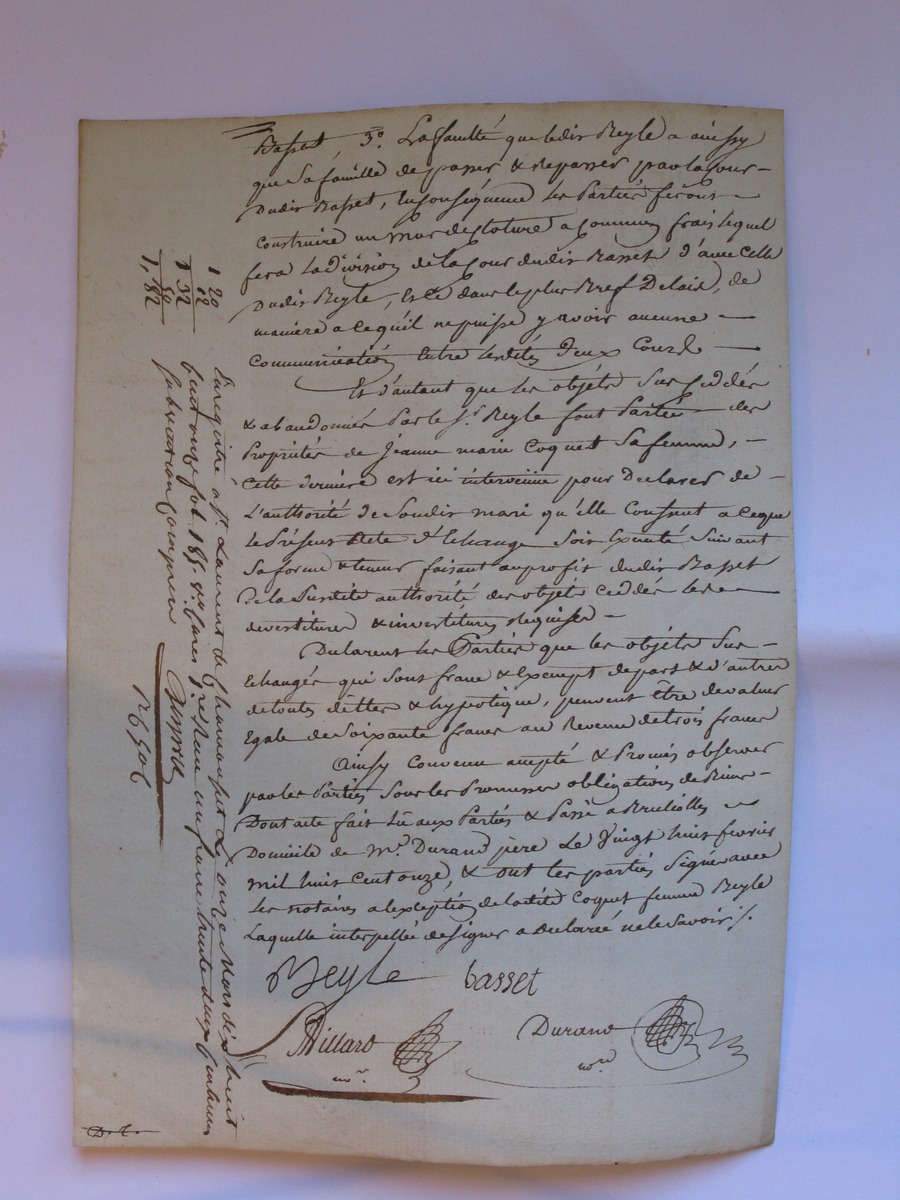 Basset, 3.° La faculté que ledit Reyle a aussy
que sa famille de passer & repasser par la cour
dudit Basset, En conséquence les Parties feront
construire un mur de cloture a communs frais lequel
fera la division de la cour dudit Basset d'avec celle
dudit Reyle, et ce dans le plus Bref Delais, de
maniere a ce qu'il ne puisse y avoir aucune
communication Entre lesdites deux Cours
Et d'autant que les objets sus ceddés
& abandonnés Par le S.r Reyle font Partie des
Propriétés de Jeanne marie Coquet sa femme,
cette derniere est ici intervenüe pour Declarer de
L'authorité de Soudit mari qu'elle Consent a ce que
le Présent Acte d'Echange Soit Exécuté Suivant
Sa forme & teneur faisant au profit dudit Basset
de la Susdite authorité des objets ceddés les
devestitures & investitures Requises
Declarent les Parties que les objets Sus
Echangés qui sont francs & Exempt de part & d'autres
de touts dettes & hypotéque, peuvent être de valeur
Egale de Soixante francs au Revenu de trois francs
Ainsy Convenu accepté & Promis observer
par les Parties Sous les Promesses obligations de Biens
Dont acte fait lû aux Parties & Passé a Bruliolles
Domicile de M.e Durand père Le Vingt huit fevrier
mil huit cent onze, & ont les parties Signé avec
les notaires a l'exception de ladite Coquet femme Reyle
Laquelle interpellée de signer a declarée ne le Savoir ./.
Reyle basset
Durand
no.re
no.r
Enregistré à St. Laurent de Chamousset le onze Mars dix huit
cent onze fol. 186 Reçu un franc trente deux centimes
subvention comprise
1 20
12
1 32
50
1,82